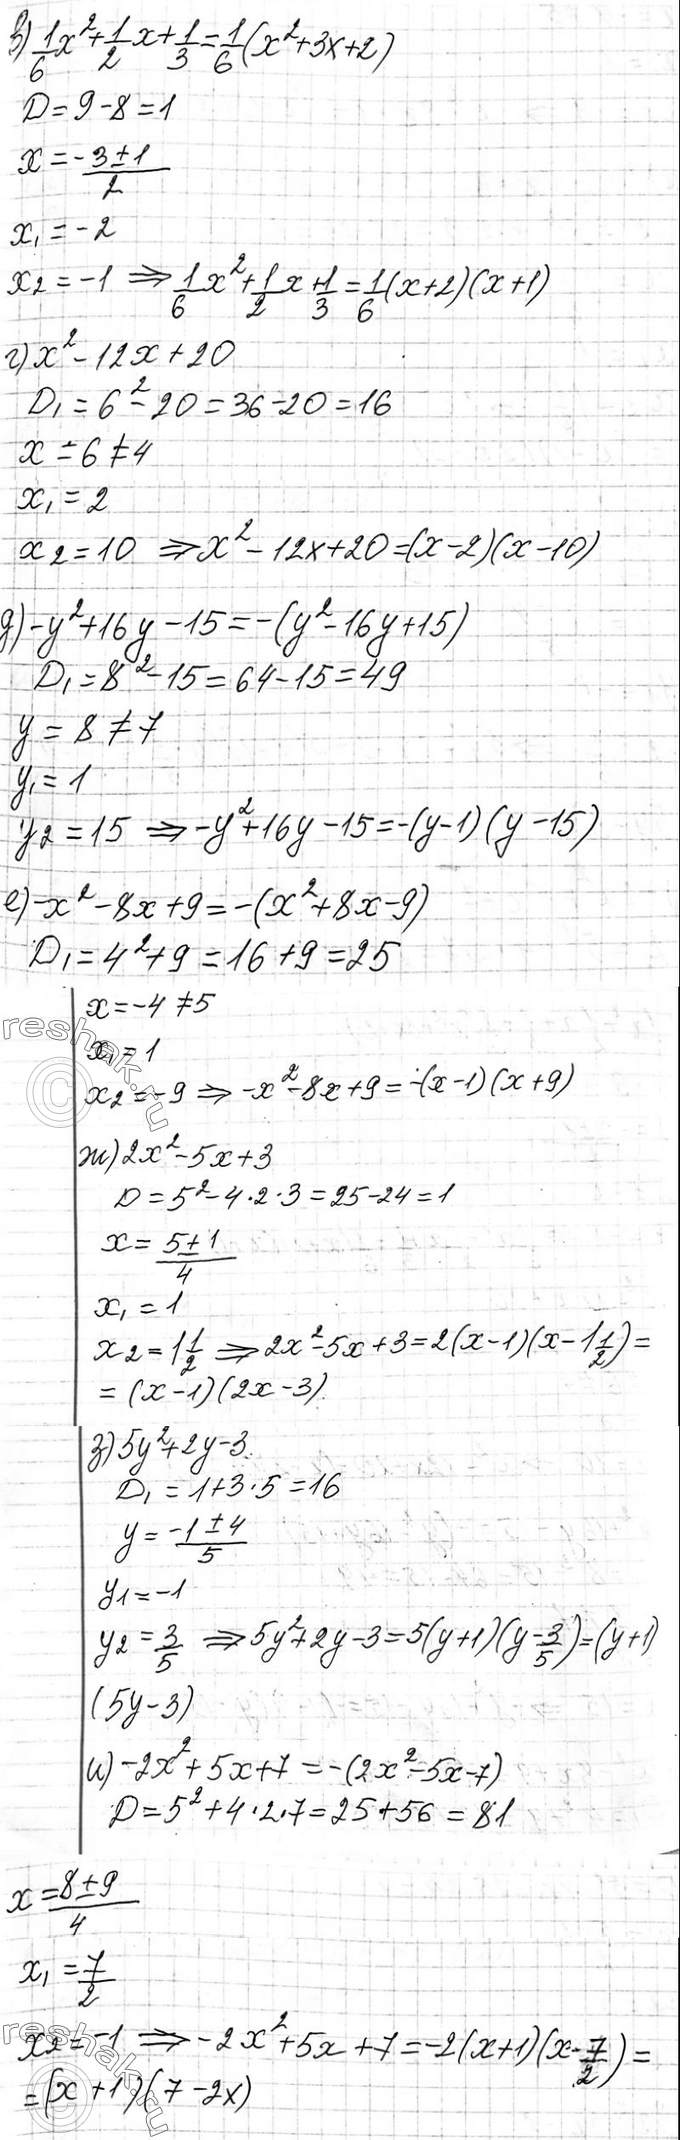 в) 1/6 x² + 1/2 x + 1/3 = 1/6 (x² + 3x + 2)
D = 9 - 8 = 1
x = -3 ± 1 / 2
x₁ = -2
x₂ = -1 ⇒ 1/6 x² + 1/2 x + 1/3 = 1/6 (x + 2)(x + 1)
г) x² - 12x + 20
D₁ = 6² - 20 = 36 - 20 = 16
x = 6 ∓ 4
x₁ = 2
x₂ = 10 ⇒ x² - 12x + 20 = (x - 2)(x - 10)
д) -y² + 16y - 15 = -(y² - 16y + 15)
D₁ = 8² - 15 = 64 - 15 = 49
y = 8 ∓ 7
y₁ = 1
y₂ = 15 ⇒ -y² + 16y - 15 = -(y - 1)(y - 15)
е) -x² - 8x + 9 = -(x² + 8x - 9)
D₁ = 4² + 9 = 16 + 9 = 25
x = -4 ∓ 5
x₁ = 1
x₂ = -9 ⇒ -x² - 8x + 9 = -(x - 1)(x + 9)
ж) 2x² - 5x + 3
D = 5² - 4·2·3 = 25 - 24 = 1
x = 5 ± 1 / 4
x₁ = 1
x₂ = 1 1/2 ⇒ 2x² - 5x + 3 = 2(x - 1)(x - 1 1/2) =
= (x - 1)(2x - 3)
з) 5y² + 2y - 3
D₁ = 1 + 3·5 = 16
y = -1 ± 4 / 5
y₁ = -1
y₂ = 3/5 ⇒ 5y² + 2y - 3 = 5(y + 1)(y - 3/5) = (y + 1)
(5y - 3)
и) -2x² + 5x + 7 = -(2x² - 5x - 7)
D = 5² + 4·2·7 = 25 + 56 = 81
x = 8 ± 9 / 4
x₁ = 7/2
x₂ = -1 ⇒ -2x² + 5x + 7 = -2(x + 1)(x - 7/2) =
= (x + 1)(7 - 2x)
reshak.ru
reshak.ru